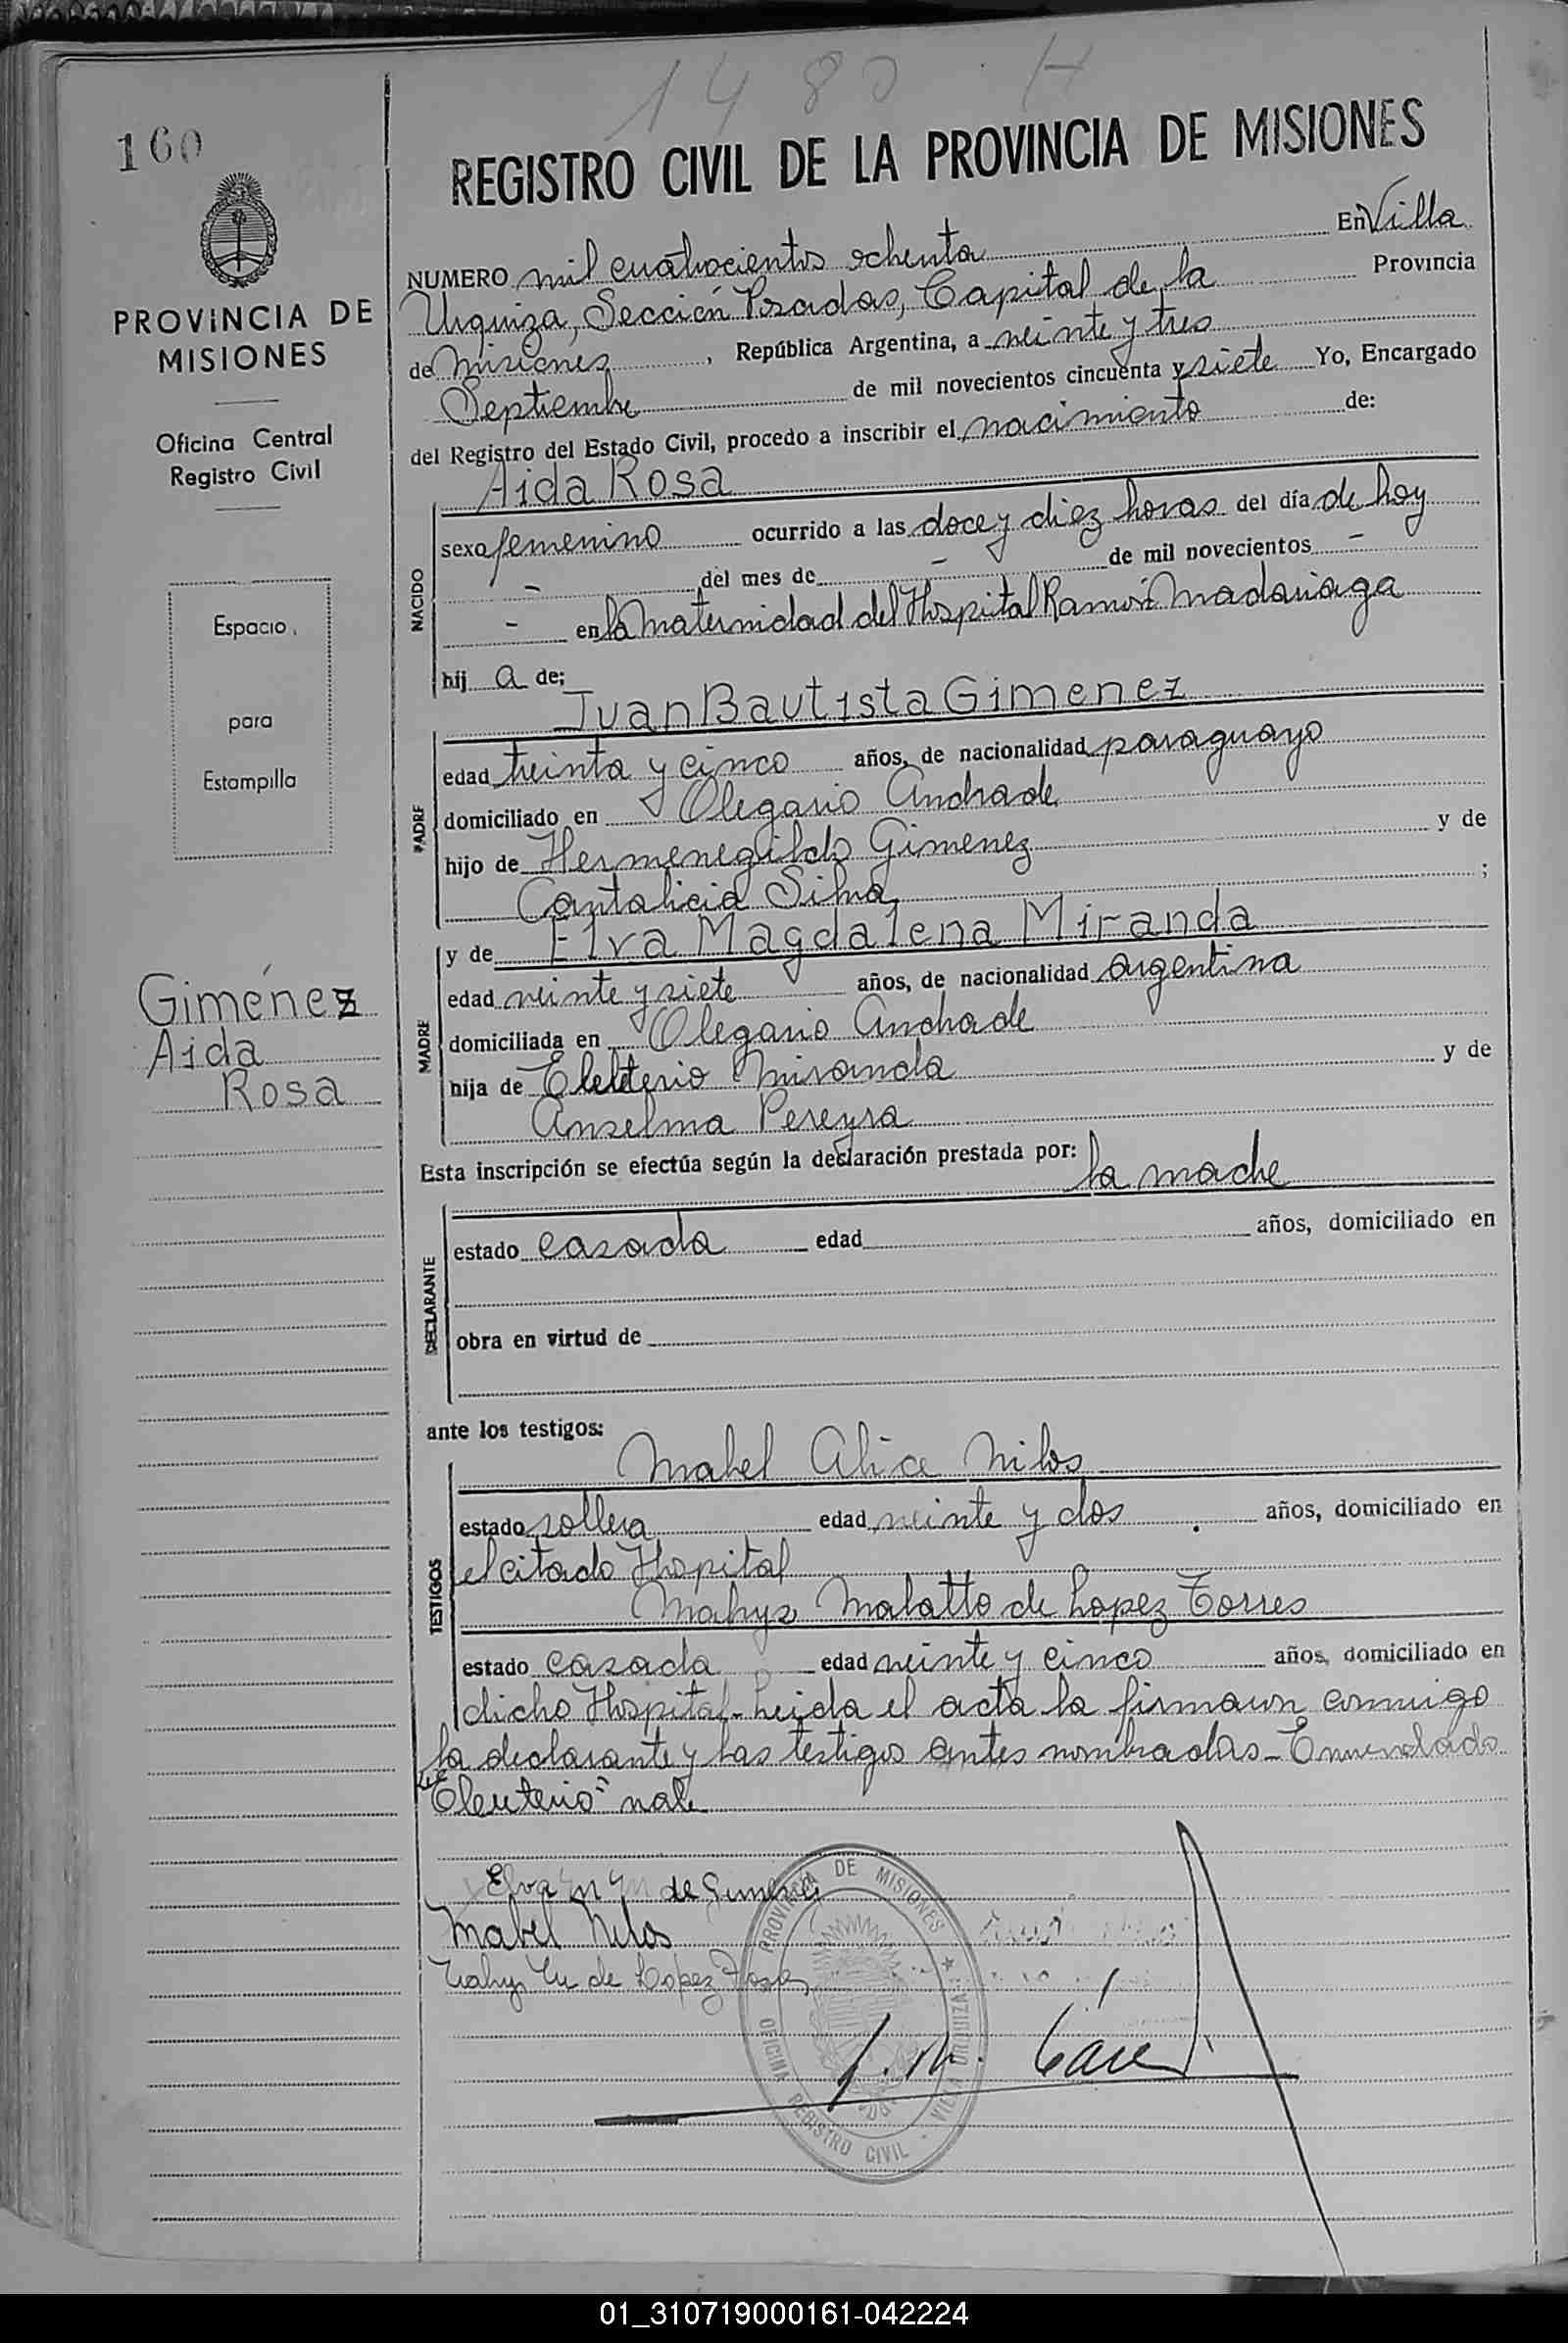 1480 H
160
REGISTRO CIVIL DE LA PROVINCIA DE MISIONES
PROVINCIA DE
MISIONES
Oficina Central
Registro Civil
Espacio
para
Estampilla
Giménez
Aida
Rosa
NUMERO mil cuatrocientos ochenta En Villa
Urquiza, Sección Posadas, Capital de la Provincia
de Misiones, República Argentina, a veinte y tres
Septiembre de mil novecientos cincuenta y siete Yo, Encargado
del Registro del Estado Civil, procedo a inscribir el nacimiento de:
Aida Rosa
NACIDO
sexo femenino ocurrido a las doce y diez horas del día de hoy
- del mes de - de mil novecientos -
- en la Maternidad del Hospital Ramón Madariaga
hij a de;
Juan Bautista Gimenez
PADRE
edad treinta y cinco años, de nacionalidad paraguayo
domiciliado en Olegario Andrade
hijo de Hermenegildo Gimenez y de
Cantalicia Silva ;
y de Elva Magdalena Miranda
MADRE
edad veinte y siete años, de nacionalidad argentina
domiciliada en Olegario Andrade
hija de Eleuterio Miranda y de
Anselma Pereyra
Esta inscripción se efectúa según la declaración prestada por: la madre
DECLARANTE
estado casada edad años, domiciliado en
obra en virtud de
ante los testigos:
Mabel Alice Nilos
TESTIGOS
estado soltera edad veinte y dos años, domiciliado en
el citado Hospital
Malatto de Lopez Torres
estado casada edad veinte y cinco años, domiciliado en
dicho Hospital - Leida el acta la firmaron conmigo
la declarante y las testigos antes nombradas - Enmendado
"Eleuterio" vale
Elva M de Gimenez
Mabel Nilos
de Lopez
PROVINCIA DE MISIONES
OFICINA REGISTRO CIVIL - VILLA URQUIZA
01_310719000161-042224